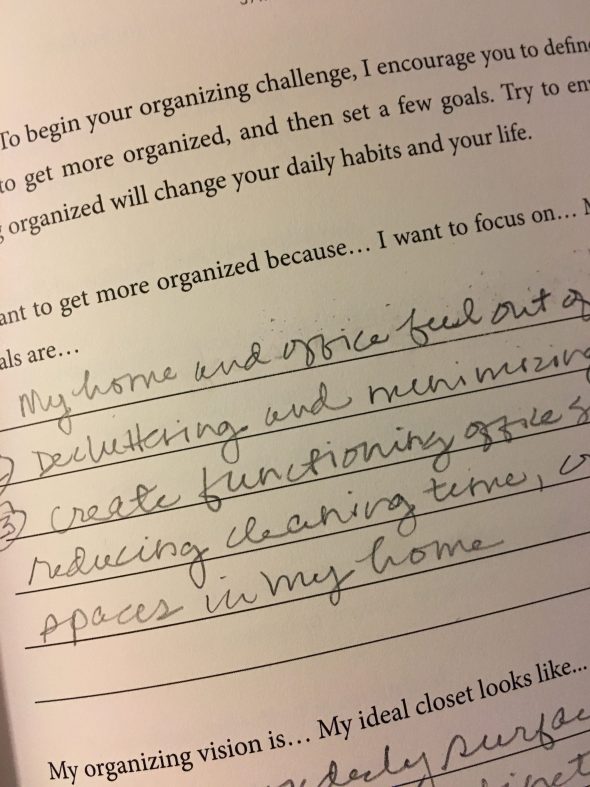 To begin your organizing challenge, I encourage you to define
to get more organized, and then set a few goals. Try to en
g organized will change your daily habits and your life.
ant to get more organized because... I want to focus on... M
als are...
My home and office feel out of
2) Decluttering and minimizing
3) create functioning office s
reducing cleaning time, o
spaces in my home
My organizing vision is... My ideal closet looks like...
surfac